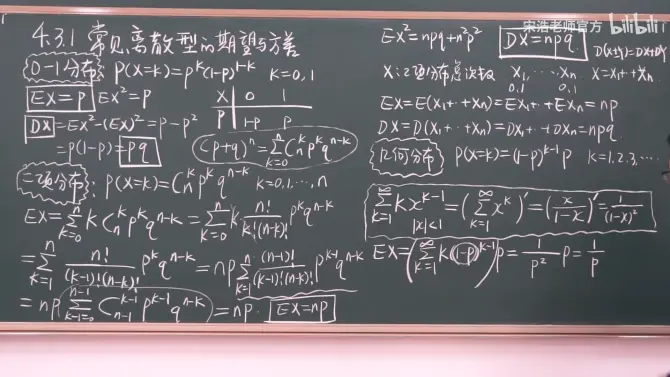 4.3.1 常见离散型的期望与方差
0-1分布 P(X=k)=p^k(1-p)^{1-k} k=0,1
EX=p EX²=p
X 0 1
P 1-p p
DX=EX²-(EX)²=p-p²
=p(1-p)=pq
(p+q)^n=∑_{k=0}^{n} C_n^k p^k q^{n-k}
二项分布: P(X=k)=C_n^k p^k q^{n-k} k=0,1,…,n
EX=∑_{k=0}^{n} k C_n^k p^k q^{n-k}=∑_{k=0}^{n} k n!/(k!(n-k)!) p^k q^{n-k}
=∑_{k=1}^{n} n!/((k-1)!(n-k)!) p^k q^{n-k}=np∑_{k=1}^{n} (n-1)!/((k-1)!(n-k)!) p^{k-1} q^{n-k}
=np∑_{k-1=0}^{n-1} C_{n-1}^{k-1} p^{k-1} q^{n-k}=np. EX=np
宋浩老师官方 bilibili
EX²=npq+n²p² DX=npq
D(X+Y)=DX+DY
X:二项分布总次数 X₁,…Xₙ X=X₁+…+Xₙ
0,1 0,1
EX=E(X₁+…+Xₙ)=EX₁+…+EXₙ=np
DX=D(X₁+…+Xₙ)=DX₁+…+DXₙ=npq
几何分布 P(X=k)=(1-p)^{k-1}p k=1,2,3,…
∑_{k=1}^{∞} kx^{k-1}=(∑_{k=1}^{∞} x^k)'=(x/(1-x))'=1/(1-x)²
|x|<1
EX=(∑_{k=1}^{∞} k(1-p)^{k-1})p=1/p² p=1/p